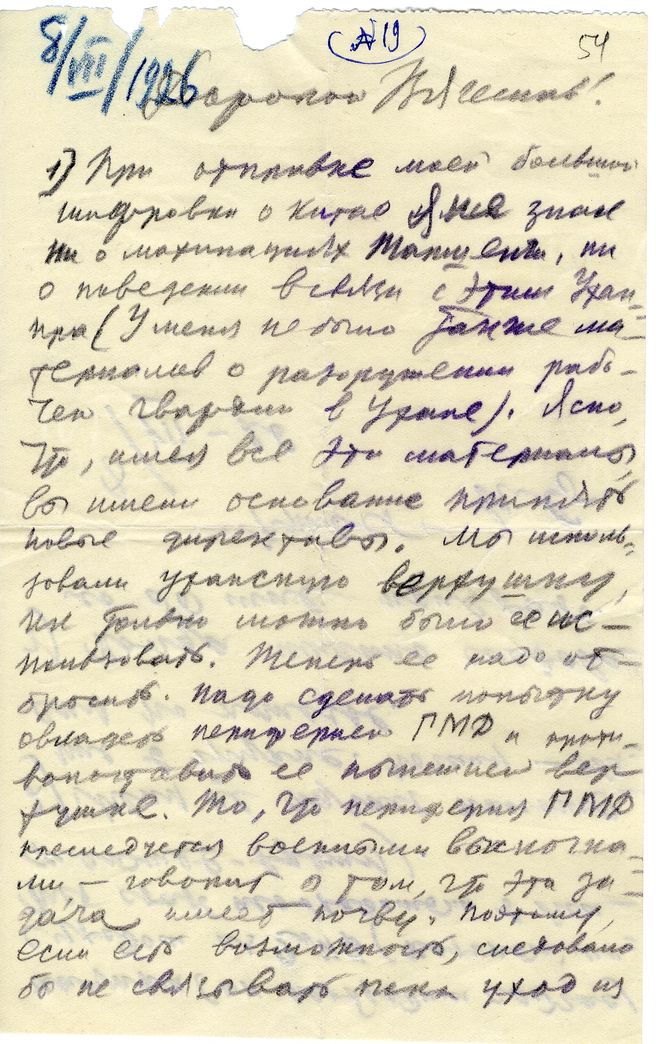 8/VIII/1926
№19
54
Дорогой Вячеслав!
1) При отправке моей большой
шифровки о Китае я не знал
ни о махинациях Таншенчи, ни
о поведении в связи с этим Ухан-
пра (У меня не было также ма-
териалов о разоружении рабо-
чей гвардии в Ухане). Ясно,
что, имея все эти материалы,
вы имели основание принять
новые директивы. Мы исполь-
зовали уханскую верхушку,
как только можно было ее ис-
пользовать. Теперь ее надо от-
бросить. Надо сделать попытку
овладеть периферией ГМД и проти-
вопоставить ее нынешней вер
хушке. То, что периферия ГМД
преследуется военными выскочка-
ми – говорит о том, что эта за-
дача имеет почву. Поэтому,
если есть возможность, следовало
бы не связывать пока уход из